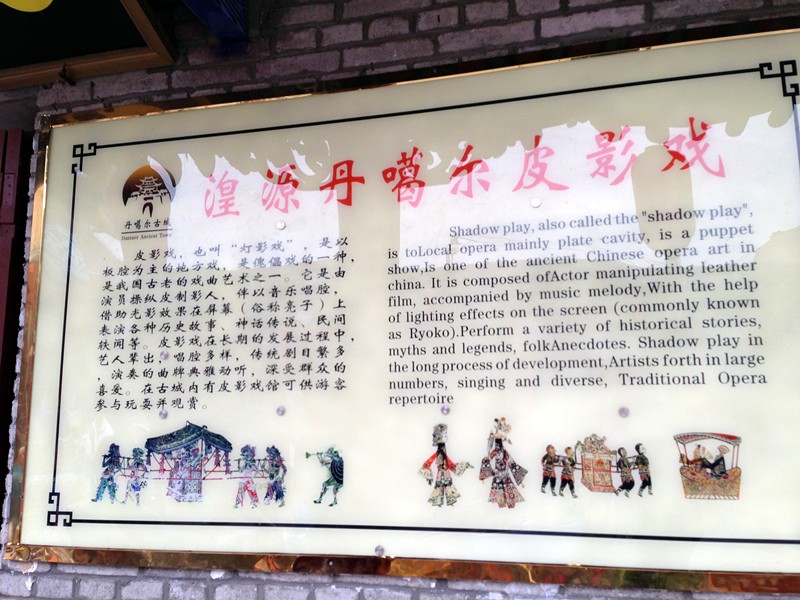 湟源丹噶尔皮影戏
丹噶尔古城
皮影戏，也叫“灯影戏”，是以
板腔为主的地方戏，是傀儡戏的一种，
是我国古老的戏曲艺术之一。它是由
演员操纵皮制影人，伴以音乐唱腔，
借助光影效果在屏幕（俗称亮子）上
表演各种历史故事、神话传说、民间
轶闻等。皮影戏在长期的发展过程中，
艺人辈出，唱腔多样，传统剧目繁多
，演奏的曲牌典雅动听，深受群众的
喜爱。在古城内有皮影戏馆可供游客
参与玩耍并观赏。
Shadow play, also called the "shadow play",
is toLocal opera mainly plate cavity, is a puppet
show,Is one of the ancient Chinese opera art in
china. It is composed ofActor manipulating leather
film, accompanied by music melody,With the help
of lighting effects on the screen (commonly known
as Ryoko).Perform a variety of historical stories,
myths and legends, folkAnecdotes. Shadow play in
the long process of development,Artists forth in large
numbers, singing and diverse, Traditional Opera
repertoire